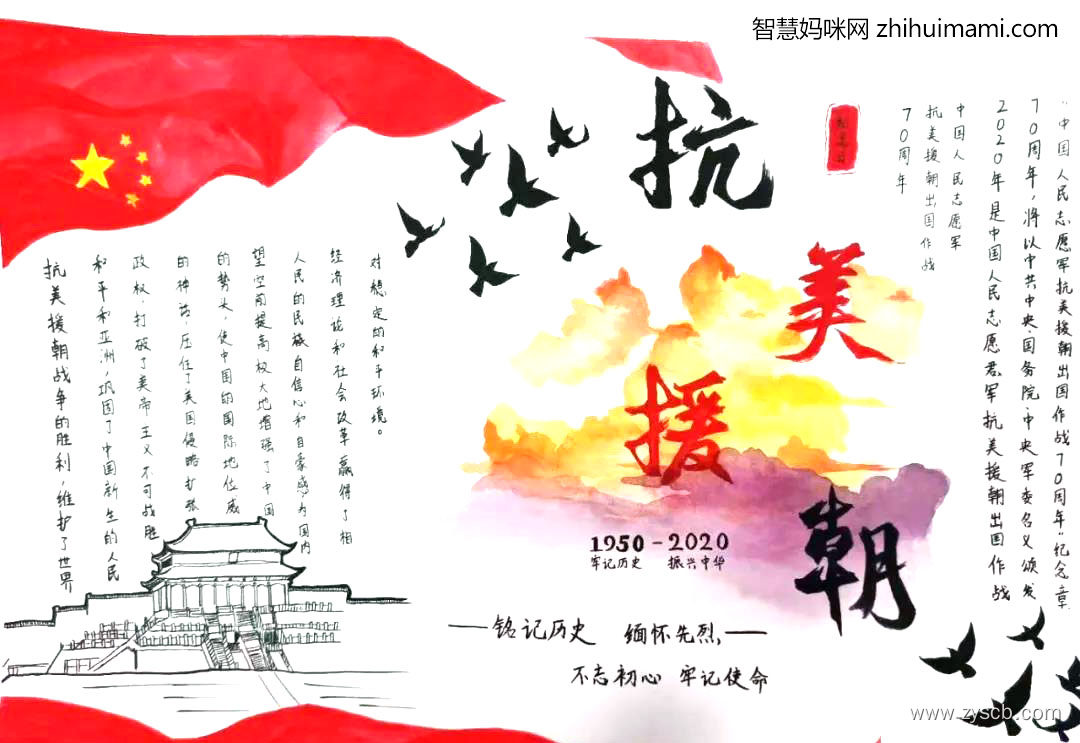 智慧妈咪网 zhihuimami.com
抗
美
援
朝
中国人民志愿军
抗美援朝出国作战
70周年
2020年是中国人民志愿君军抗美援朝出国作战
70周年,将以中共中央国务院,中央军委名义颁发
“中国人民志愿军抗美援朝出国作战70周年”纪念章
抗美援朝战争的胜利,维护了世界
和平和亚洲,巩固了中国新生的人民
政权,打破了美帝主义不可战胜
的神话,压住了美国侵略扩张
的势头,使中国的国际地位威
望空前提高极大地增强了中国
人民的民族自信心和自豪感为国内
经济理论和社会改革赢得了相
对稳定的和平环境。
1950-2020
牢记历史 振兴中华
——铭记历史 缅怀先烈,——
不忘初心 牢记使命
www.zyscb.com